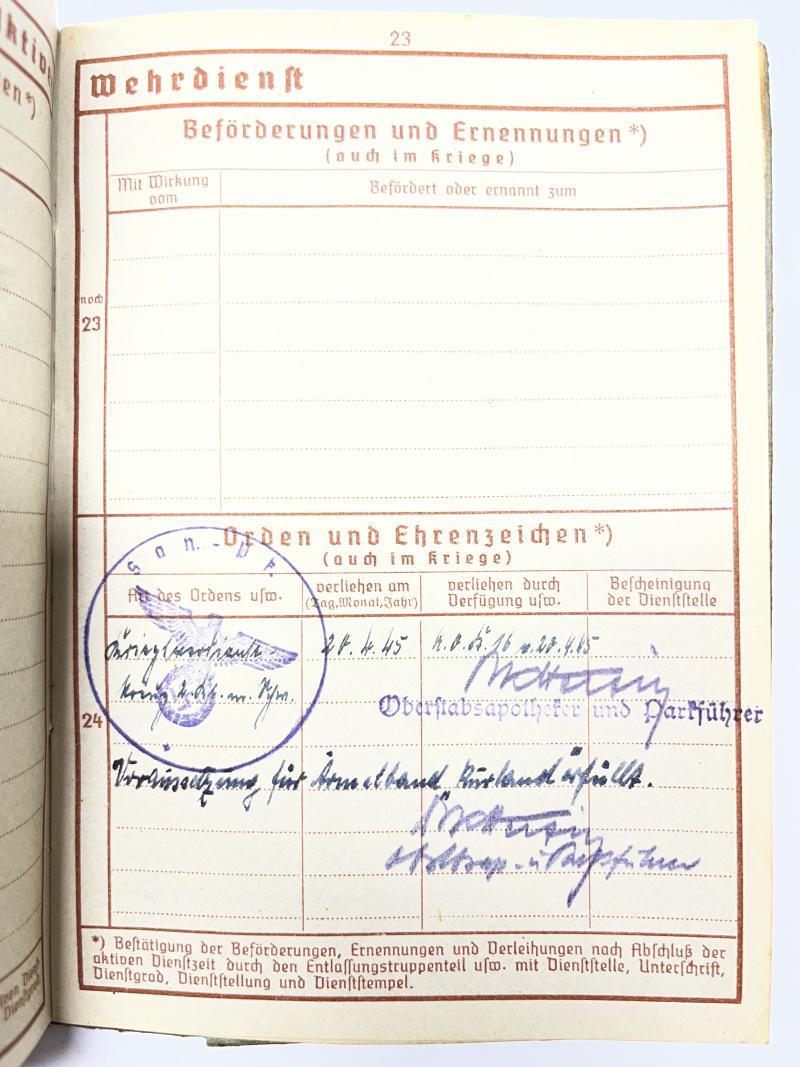 23
Wehrdienst
Beförderungen und Ernennungen *)
(auch im Kriege)
Mit Wirkung
vom
Befördert oder ernannt zum
noch
23
Orden und Ehrenzeichen *)
(auch im Kriege)
San.-Pk.
Art des Ordens usw.
verliehen am
(Tag, Monat, Jahr)
verliehen durch
Verfügung usw.
Bescheinigung
der Dienststelle
Kriegsverdienst 20.4.45 K.O.K. 16 v. 20.4.45
kreuz 2. Kl. m. Schw.
Oberstabsapotheker und Parkführer
24
Voraussetzung für Ärmelband Kurland erfüllt.
*) Bestätigung der Beförderungen, Ernennungen und Verleihungen nach Abschluß der
aktiven Dienstzeit durch den Entlassungstruppenteil usw. mit Dienststelle, Unterschrift,
Dienstgrad, Dienststellung und Dienststempel.